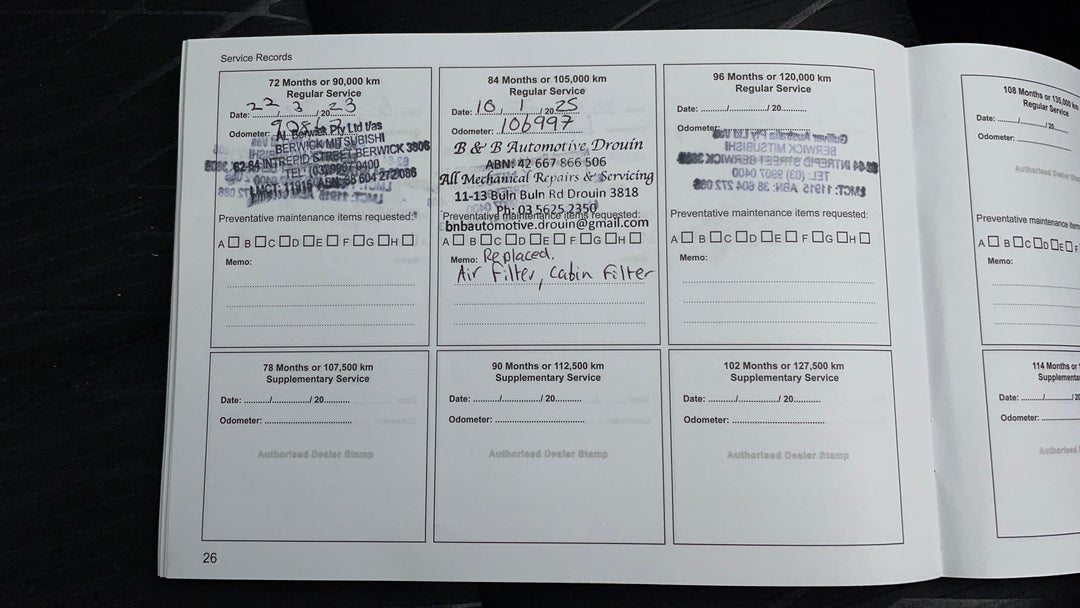 Service Records
72 Months or 90,000 km
Regular Service
Date: 22/3/2023
Odometer:
AL Berwick Pty Ltd t/as
BERWICK MITSUBISHI
62-84 INTREPID STREET BERWICK 3806
TEL: (03) 9907 0400
LMCT: 11915 ABN: 38 604 272 086
Preventative maintenance items requested:
A □ B □ C □ D □ E □ F □ G □ H □
Memo:
84 Months or 105,000 km
Regular Service
Date: 10/1/2025
Odometer: 106997
B & B Automotive Drouin
ABN: 42 667 866 506
All Mechanical Repairs & Servicing
11-13 Buln Buln Rd Drouin 3818
Ph: 03 5625 2350
Preventative maintenance items requested:
bnbautomotive.drouin@gmail.com
A □ B □ C □ D □ E □ F □ G □ H □
Memo: Replaced.
Air Filter, Cabin Filter
96 Months or 120,000 km
Regular Service
Date: ......../............/ 20..........
Odometer:
Preventative maintenance items requested:
A □ B □ C □ D □ E □ F □ G □ H □
Memo:
108 Months or 135,000 km
Regular Service
Date: ......../............/ 20
Odometer:
Authorised Dealer
Preventative maintenance items
A □ B □ C □ D □ E □ F
Memo:
78 Months or 107,500 km
Supplementary Service
Date: ......../............/ 20..........
Odometer:
Authorised Dealer Stamp
90 Months or 112,500 km
Supplementary Service
Date: ......../............/ 20..........
Odometer:
Authorised Dealer Stamp
102 Months or 127,500 km
Supplementary Service
Date: ......../............/ 20..........
Odometer:
Authorised Dealer Stamp
114 Months or
Supplementa
Date: ......../............/ 2
Odometer:
Authorised
26